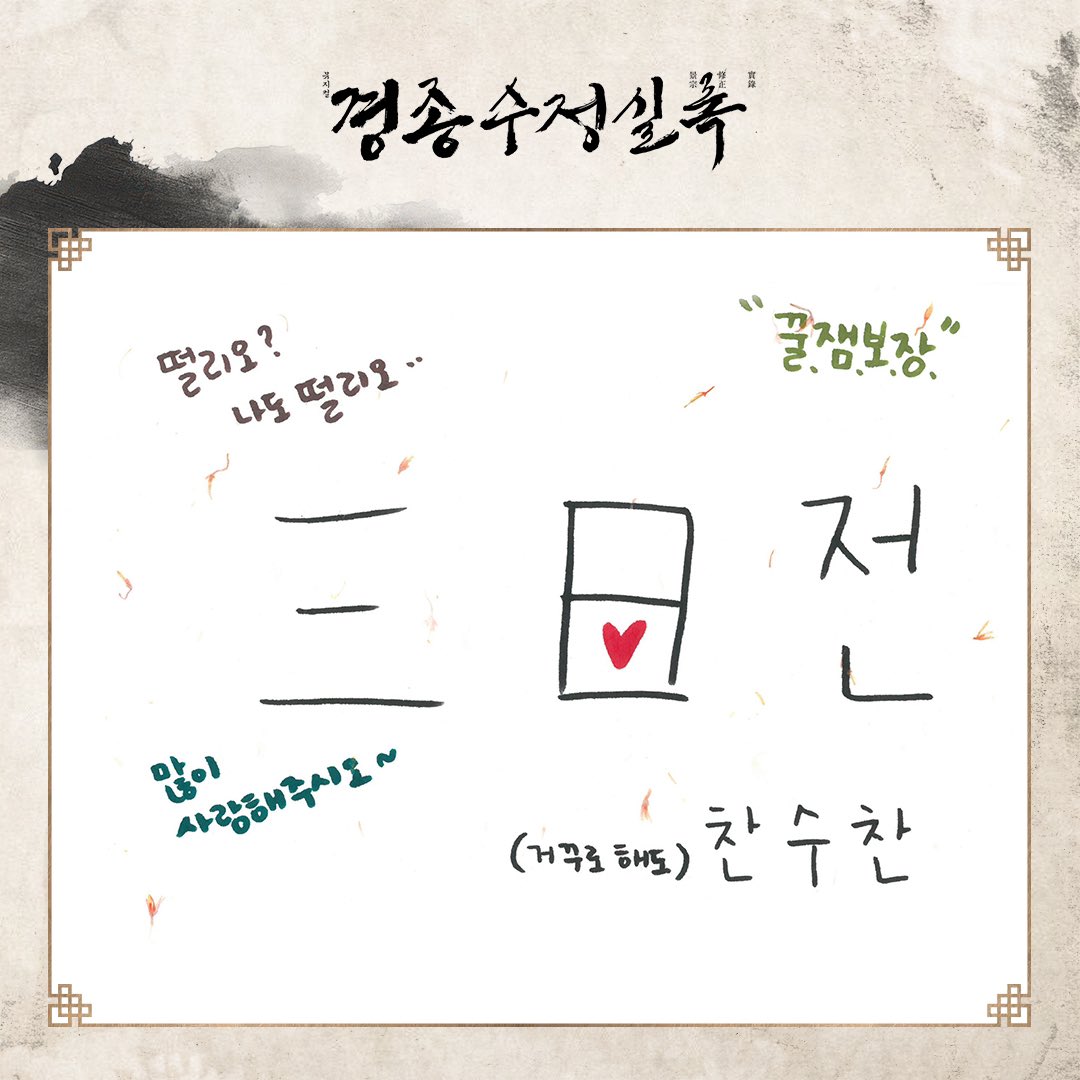 뮤지컬
경종수정실록
景宗 修正 實錄
떨리오?
나도 떨리오..
"꿀.잼.보.장."
三日전
많이
사랑해주시오~
(거꾸로 해도) 찬수찬